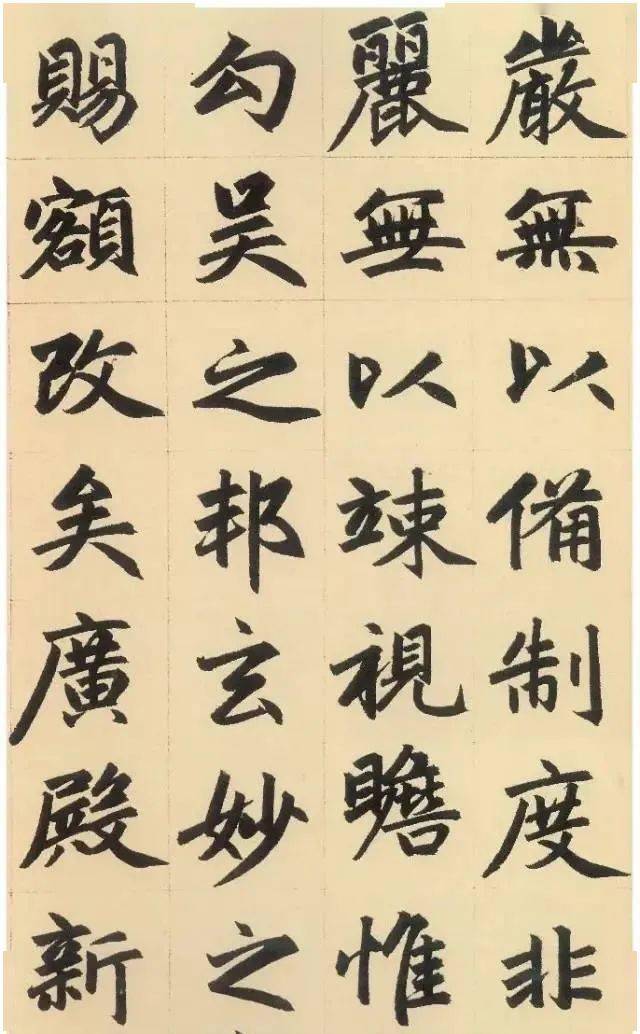 嚴無以備制度非
麗無以竦視瞻惟
勾吴之邦玄妙之
賜額改矣廣殿新